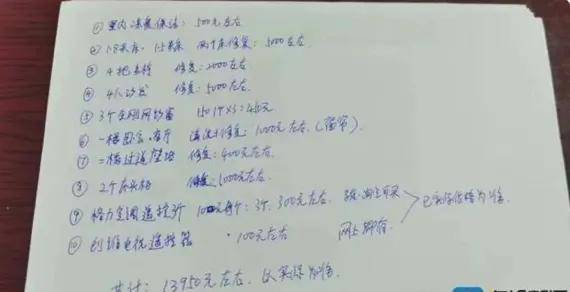 ① 室内深度保洁：500元左右
② 1.8米床、1.5米床 两个床修复：5000左右
③ 4把
修复：2000左右
④ 4人沙发 修复：5000左右
⑤ 3个金刚网纱窗 150个×3=450元
⑥ 一楼 客厅 清洗和修复：1000元左右.(窗帘).
⑦ 二楼过道壁 修复：400元左右.
⑧ 2个床头柜 修复1000元左右.
⑨ 格力空调遥控器 100元每个：3个，300元左右
已实际价格为准.
⑩ 创维电视遥控器 100元左右 网上
共计：13950元左右，以实际为准.